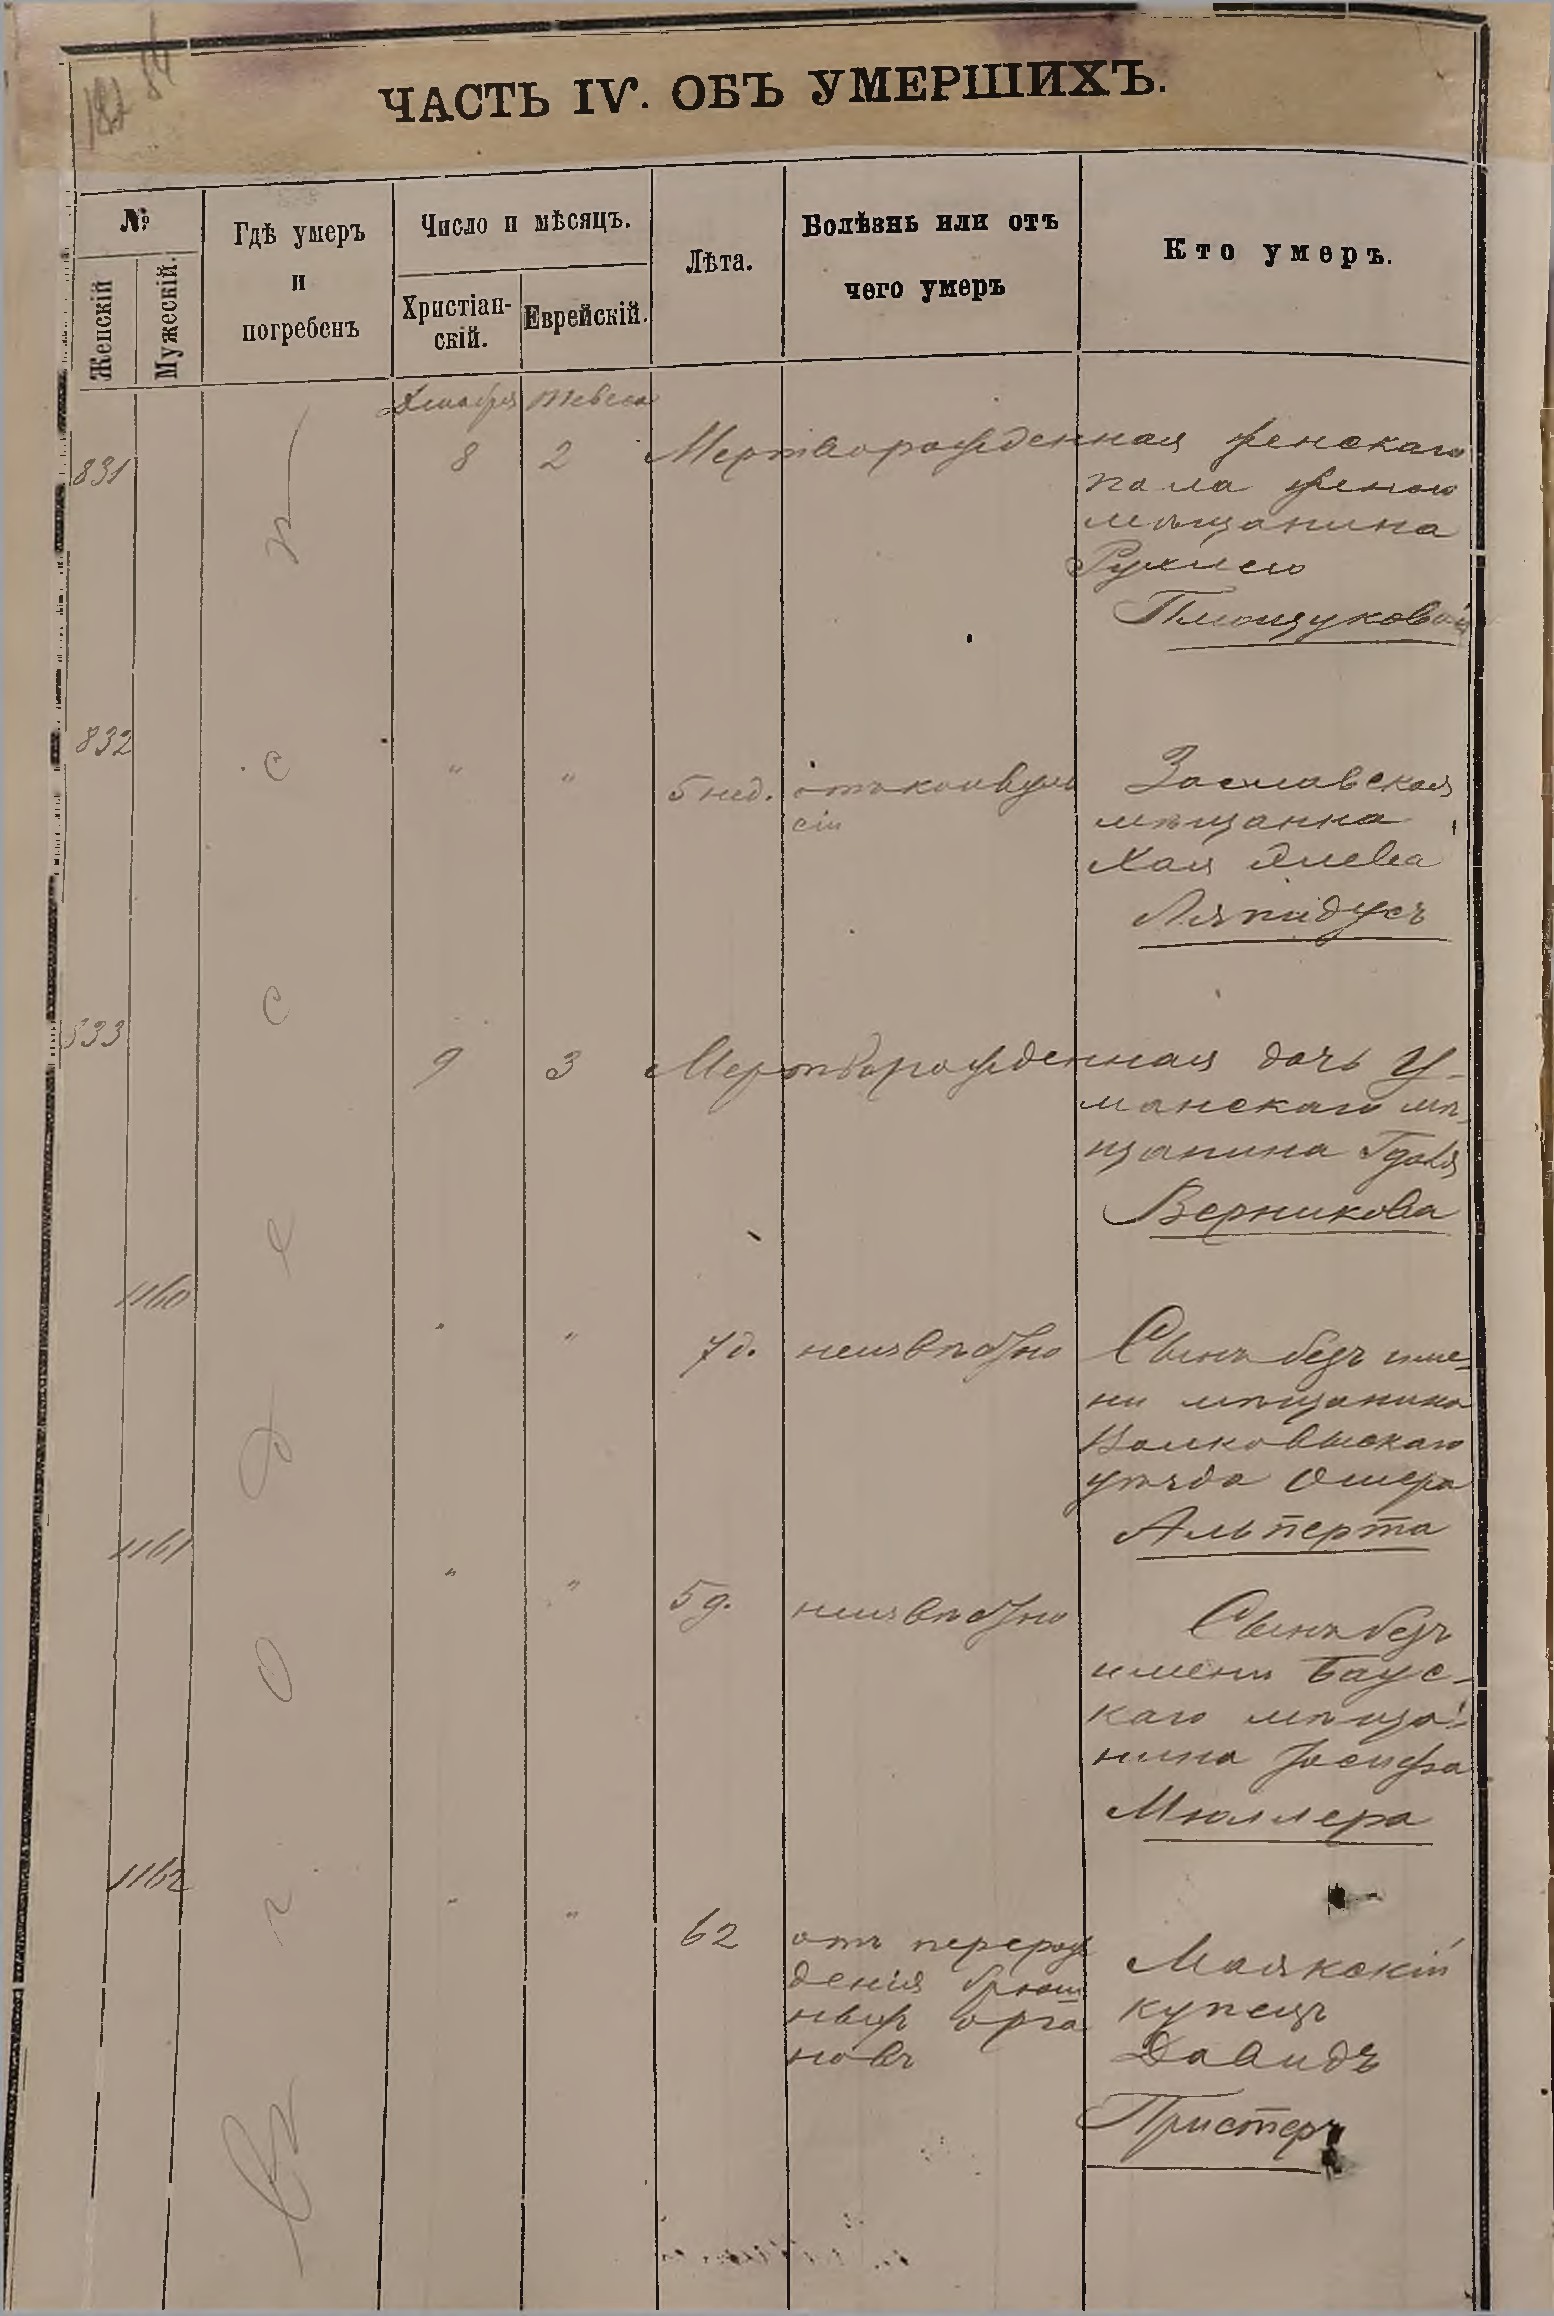 ЧАСТЬ IV. ОБЪ УМЕРШИХЪ.
№
Женскій
Мужескій.
Гдѣ умеръ
и
погребенъ
Число и мѣсяцъ.
Христіан-
скій.
Еврейскій.
Лѣта.
Болѣзнь или отъ
чего умеръ
Кто умеръ.
Декабря Тевеса
831
8 2 Мертворожденная женскаго
пола женою
мѣщанина
Рухлею
832
" " 5 нед. отъ конвуль
сіи
Заславская
мѣщанка
Хая
Ляпидусъ
833
9 3 Мертворожденная дочь У-
манскаго мѣ-
щанина
Верникова
1160
" " 7 д. неизвѣстно Сынъ безъ име-
ни мѣщанина
Волковыскаго
уѣзда Ошера
Альперта
1161
" " 5 д. неизвѣстно Сынъ безъ
имени Баус-
каго мѣща-
нина Іосифа
Мюллера
1162
" " 62 отъ перерож
денія брюш
ныхъ орга
новъ
Маякскій
купецъ
Давидъ
Пристеръ
Одесса